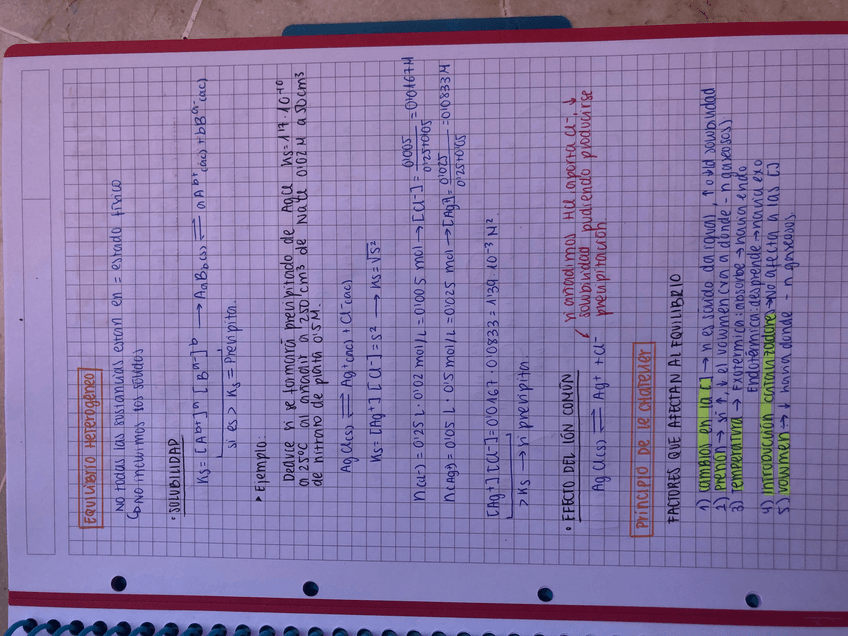 EQUILIBRIO HETEROGÉNEO
NO todas las sustancias están en = estado físico
↳ NO incluimos los sólidos
• SOLUBILIDAD
Ks = [A^b+]^a [B^a-]^b → AaBb (s) ⇌ aA^b+ (ac) + bB^a- (ac)
si es > Ks = Precipita.
▸ Ejemplo:
Deduce si se formará precipitado de AgCl Ks = 1'7 · 10^-10
a 25°C al añadir a 250 cm³ de NaCl 0'02 M a 50 cm³
de nitrato de plata 0'5 M.
AgCl (s) ⇌ Ag+ (ac) + Cl- (ac)
Ks = [Ag+] [Cl-] = s² → Ks = √s²
n (Cl-) = 0'25 L · 0'02 mol/L = 0'005 mol → [Cl-] = 0'005 / 0'25+0'05 = 0'0167 M
n (Ag+) = 0'05 L · 0'5 mol/L = 0'025 mol → [Ag+] = 0'025 / 0'25+0'05 = 0'0833 M
[Ag+] [Cl-] = 0'0167 · 0'0833 = 1'39 · 10^-3 M².
> Ks → si precipita.
• EFECTO DEL IÓN COMÚN
si añadimos HCl aporta Cl-, ↓
solubilidad pudiendo producirse
precipitación.
AgCl (s) ⇌ Ag+ + Cl-
PRINCIPIO DE LE CHATELIER
FACTORES QUE AFECTAN AL EQUILIBRIO
1) Cambios en la [ ] → si es sólido da igual, ↑ o ↓ d solubilidad
2) Presión → si ↑ ↓ el volumen (va a donde - n gaseosos)
3) Temperatura → Exotérmica: absorbe → hacia endo
Endotérmica: desprende → hacia exo
4) Introducción catalizadores → NO afecta a las [ ]
5) Volumen → ↓ hacia donde - n gaseosos.